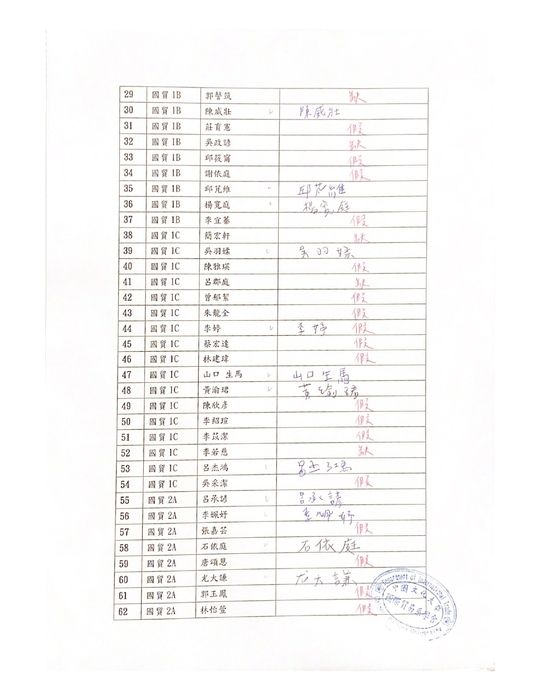 29 國貿 1B 郭謦筑 缺
30 國貿 1B 陳威壯 陳威壯
31 國貿 1B 莊育憲 假
32 國貿 1B 吳政諺 缺
33 國貿 1B 邱筱甯 假
34 國貿 1B 謝依庭 假
35 國貿 1B 邱芃維 邱芃維
36 國貿 1B 楊寬庭 楊寬庭
37 國貿 1B 李宜蓁 假
38 國貿 1C 簡宏軒 缺
39 國貿 1C 吳羽媃 吳羽媃
40 國貿 1C 陳雅瑛 假
41 國貿 1C 呂郡庭 缺
42 國貿 1C 曾郁絜 假
43 國貿 1C 朱龍全 假
44 國貿 1C 李婷 李婷 假
45 國貿 1C 蔡宏逵 假
46 國貿 1C 林建瑋 假
47 國貿 1C 山口 生馬 山口生馬
48 國貿 1C 黃渝珺 黃渝珺
49 國貿 1C 陳欣彥 假
50 國貿 1C 李紹瑄 假
51 國貿 1C 李苡潔 假
52 國貿 1C 李若慈 缺
53 國貿 1C 呂杰鴻
54 國貿 1C 吳采潔 假
55 國貿 2A 呂承諺 呂承諺
56 國貿 2A 李姵妤 李姵妤
57 國貿 2A 張嘉芸 假
58 國貿 2A 石依庭 石依庭
59 國貿 2A 唐頌恩 假
60 國貿 2A 尤大謙 尤大謙
61 國貿 2A 郭玉鳳 假
62 國貿 2A 林怡萱 假
Department of International Trade
中國文化大學
國際貿易學系